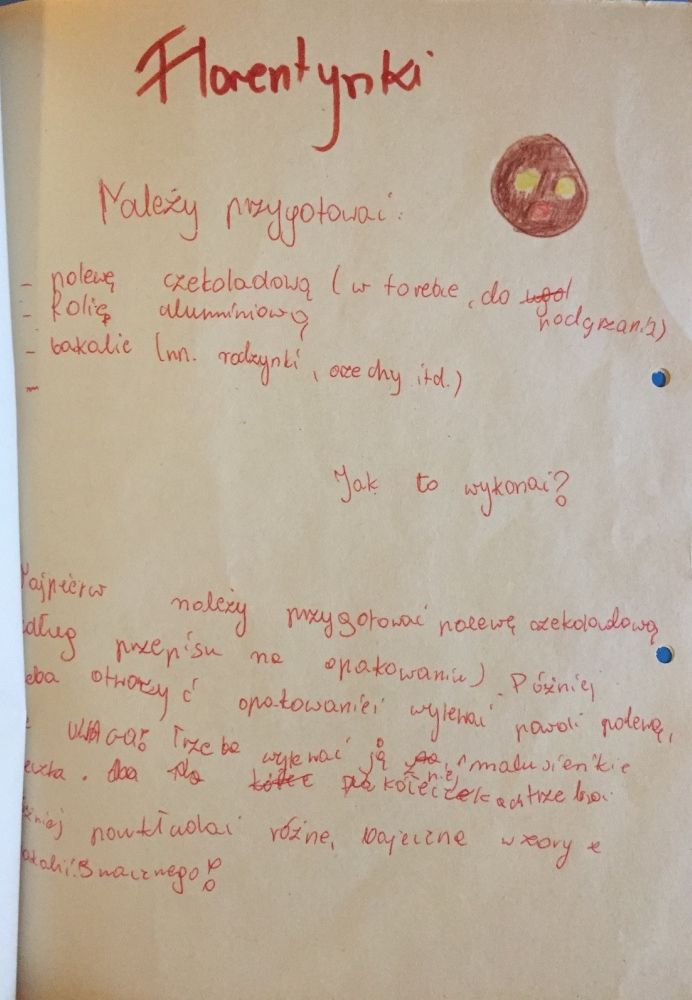 Florentynki
Należy przygotować:
- polewę czekoladową (w torebce, do
podgrzania)
- folię aluminiową
- bakalie (np. rodzynki, orzechy itd.)
-
Jak to wykonać?
Najpierw należy przygotować polewę czekoladową
według przepisu na opakowaniu). Później
trzeba otworzyć opakowanie i wylewać powoli polewę,
UWAGA! Trzeba wylewać ją malusieńkie
kółeczkach trzeba
później powkładać różne, bajeczne wzory z
bakalii. Smacznego!